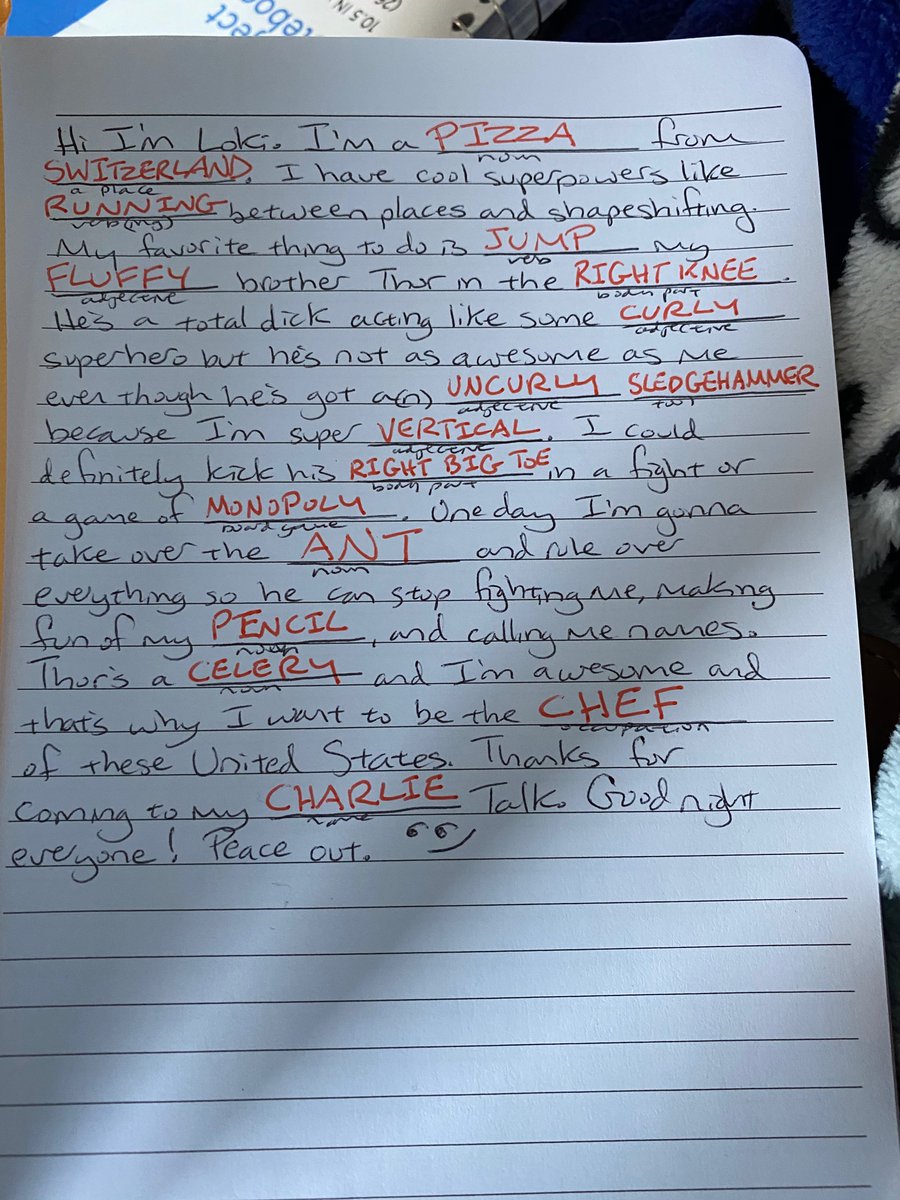 ect
tebo
10.5 IN
Hi I'm Loki. I'm a PIZZA from
noun
SWITZERLAND. I have cool superpowers like
a place
RUNNING between places and shapeshifting.
verb(ing)
My favorite thing to do is JUMP my
verb
FLUFFY brother Thor in the RIGHT KNEE.
adjective body part
He's a total dick acting like some CURLY
adjective
superhero but he's not as awesome as me
even though he's got a(n) UNCURLY SLEDGEHAMMER
adjective tool
because I'm super VERTICAL. I could
adjective
definitely kick his RIGHT BIG TOE in a fight or
body part
a game of MONOPOLY. One day I'm gonna
board game
take over the ANT and rule over
noun
everything so he can stop fighting me, making
fun of my PENCIL, and calling me names.
noun
Thor's a CELERY and I'm awesome and
noun
that's why I want to be the CHEF
occupation
of these United States. Thanks for
coming to my CHARLIE Talk. Good night
name
everyone! Peace out.